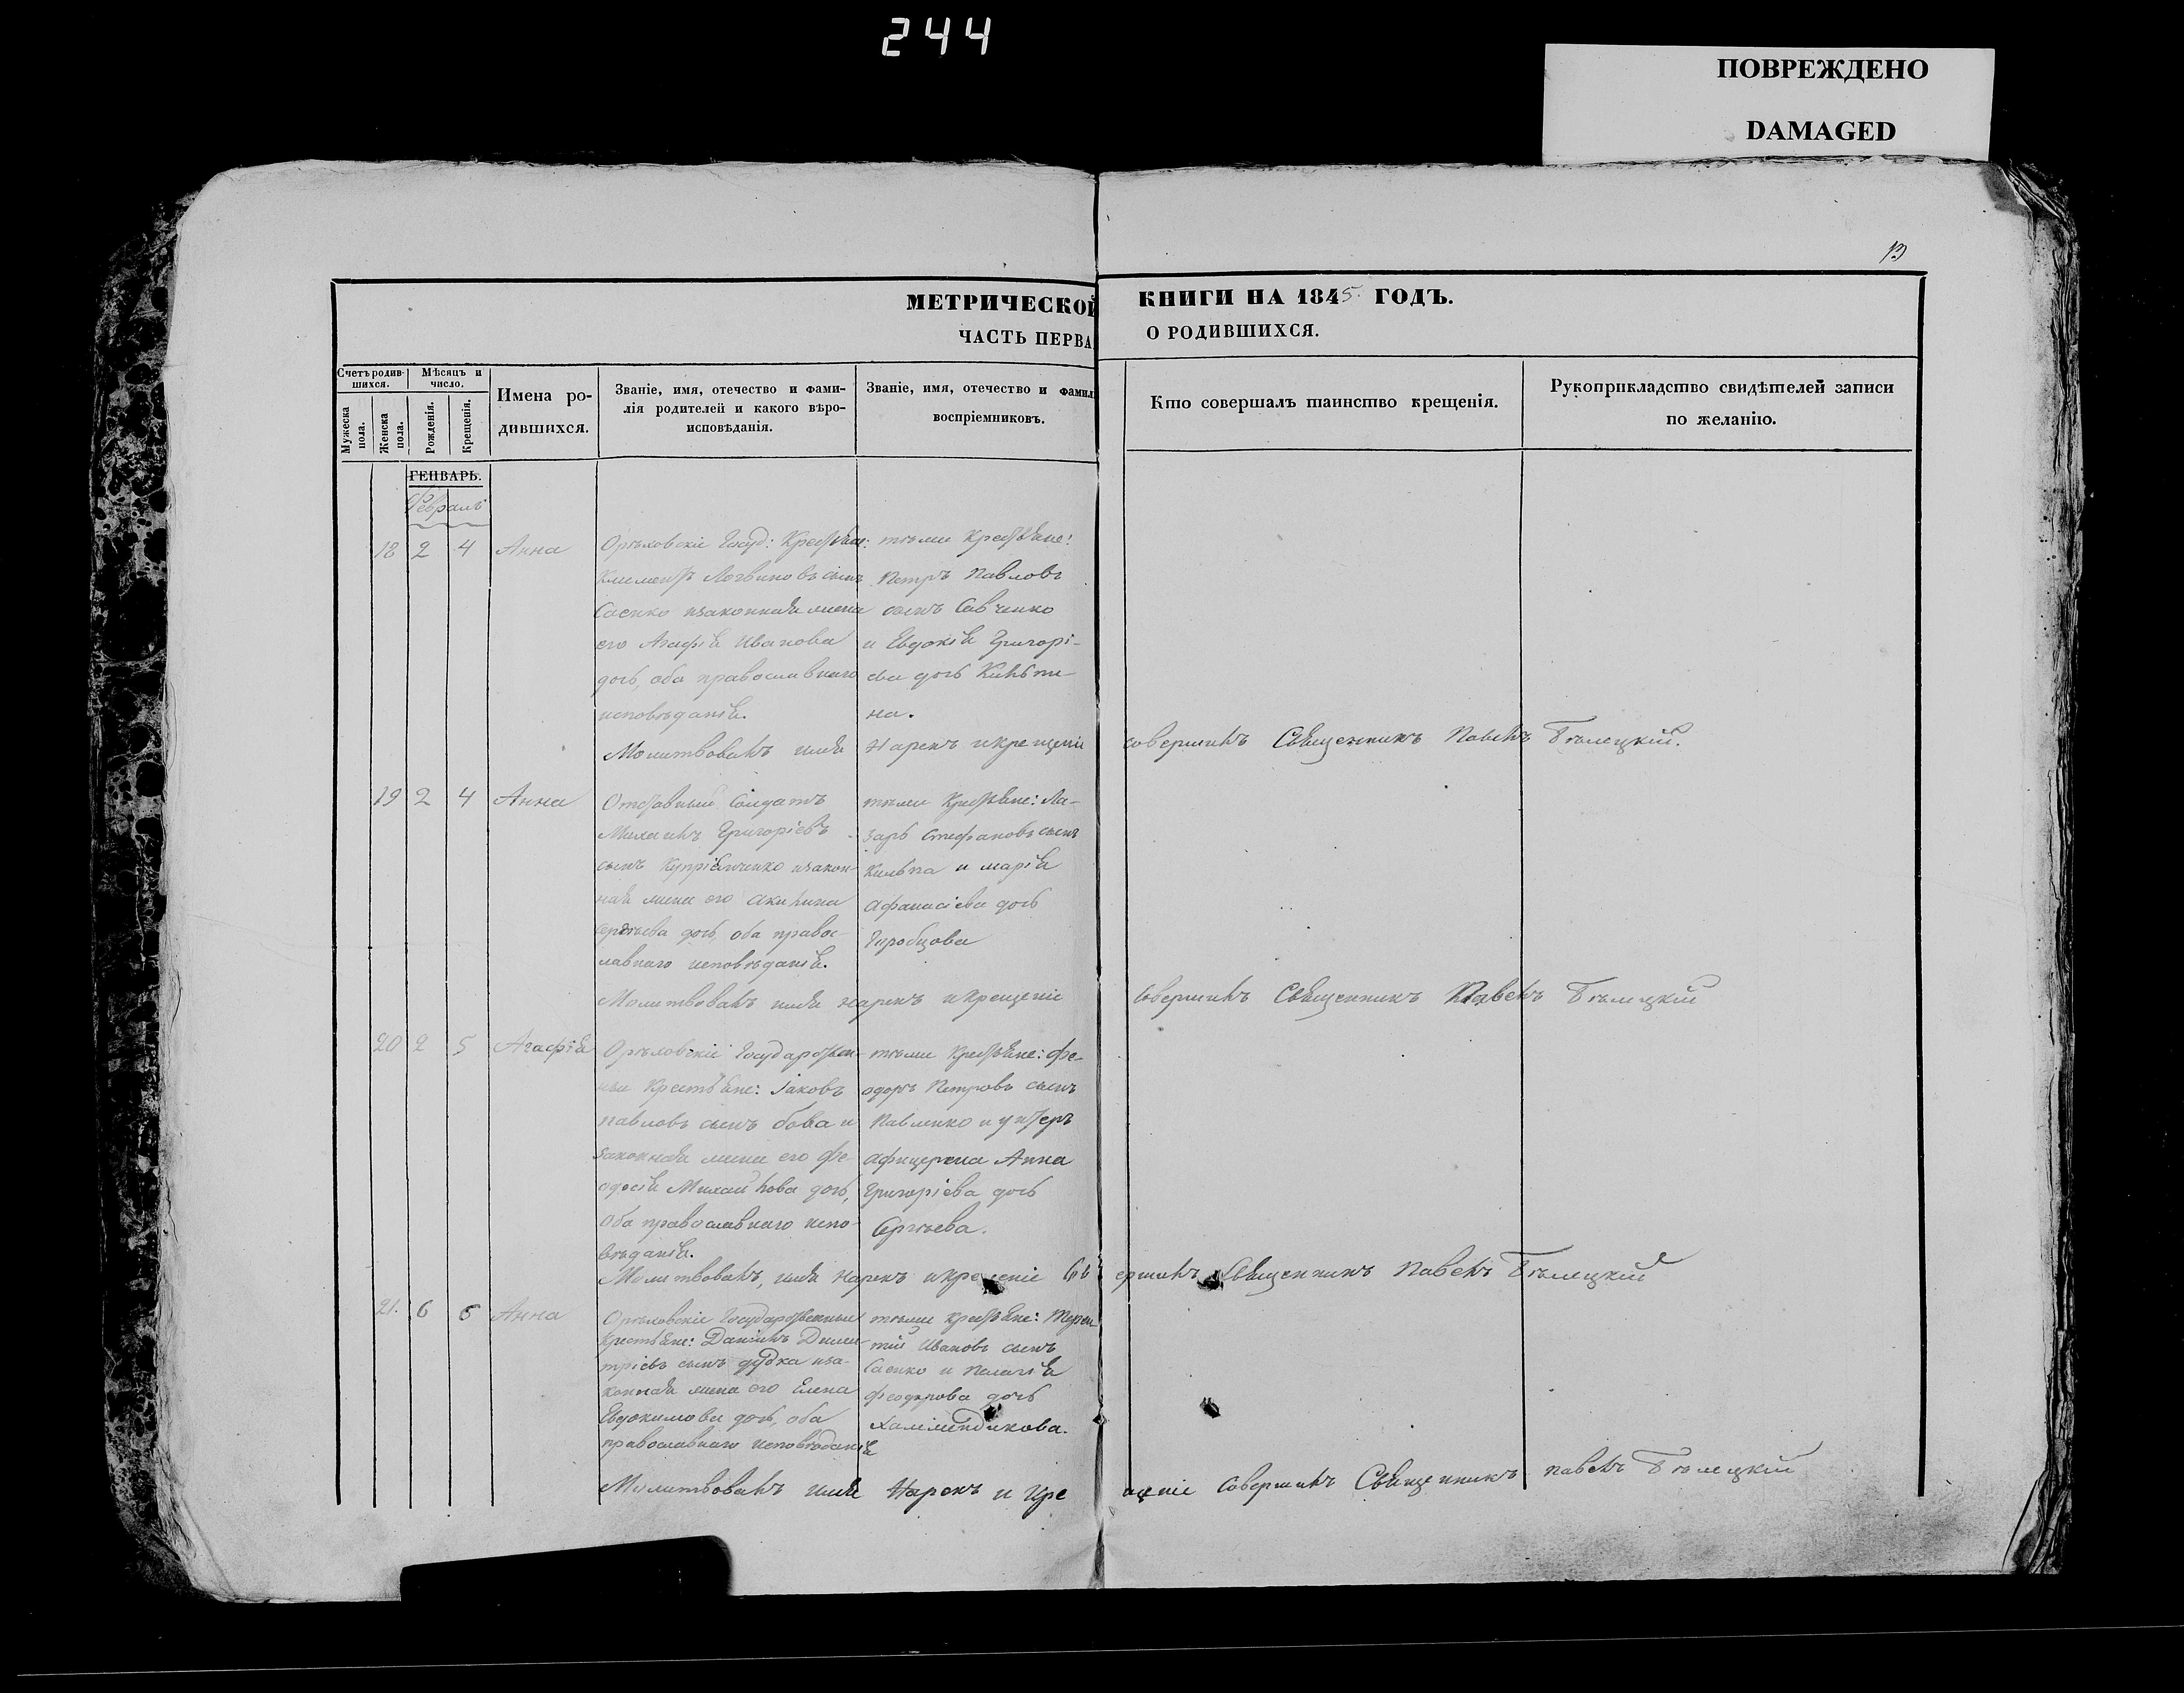 244
ПОВРЕЖДЕНО
DAMAGED
МЕТРИЧЕСКОЙ КНИГИ НА 1845. ГОДЪ.
ЧАСТЬ ПЕРВА О РОДИВШИХСЯ.
Счетъ родив-
шихся.
Мужеска
пола.
Женска
пола.
Мѣсяцъ и
число.
Рожденія.
Крещенія.
Имена ро-
дившихся.
Званіе, имя, отечество и фами-
лія родителей и какого вѣро-
исповѣданія.
Званіе, имя, отечество и фамил
воспріемниковъ.
Кто совершалъ таинство крещенія.
Рукоприкладство свидѣтелей записи
по желанію.
ГЕНВАРЬ.
Февраль
18 2 4 Анна
Орѣховскіе Госуд: Крестьяне:
Климентъ Логвиновъ сынъ
Саенко и законная жена
его Агафія Иванова
дочь, оба православнаго
исповѣданія.
тѣжи Крестьяне:
Петръ Павловъ
сынъ Савченко
и Евдокія Григорі-
ева дочь
на.
Молитвовалъ имя Нарекъ и крещеніе совершилъ Священникъ Павелъ Бѣлецкій.
19 2 4 Анна
Отставный Солдатъ
Михаилъ Григоріевъ
сынъ Купріянченко и закон-
ная жена его Акилина
Сергѣева дочь, оба правос-
лавнаго исповѣданія.
тѣжи Крестьяне: Ла-
зарь Стефановъ сынъ
и Марія
Афанасіева дочь
Молитвовалъ имя нарекъ и крещеніе совершилъ Священникъ Павелъ Бѣлецкій
20 2 5 Агафія
Орѣховскіе Государствен-
ные Крестьяне: Іаковъ
Павловъ сынъ Бова и
законная жена его Фе-
одосія Михайлова дочь,
Оба православнаго испо-
вѣданія.
тѣжи Крестьяне: Фе-
одоръ Петровъ сынъ
Павленко и унтеръ
афицерша Анна
Григоріева дочь
Сергѣева.
Молитвовалъ, имя нарекъ и крещеніе совершилъ Священникъ Павелъ Бѣлецкій
21. 6 6 Анна
Орѣховскіе Государственные
Крестьяне: Даніилъ Дими-
тріевъ сынъ Дудка и за-
конная жена его Елена
Евдокимова дочь, оба
православнаго исповѣданія
тѣжи Крестьяне: Терен-
тій Ивановъ сынъ
Саенко и Пелагія
Феодорова дочь
Молитвовалъ имя Нарекъ и Крещеніе Совершилъ Священникъ Павелъ Бѣлецкій